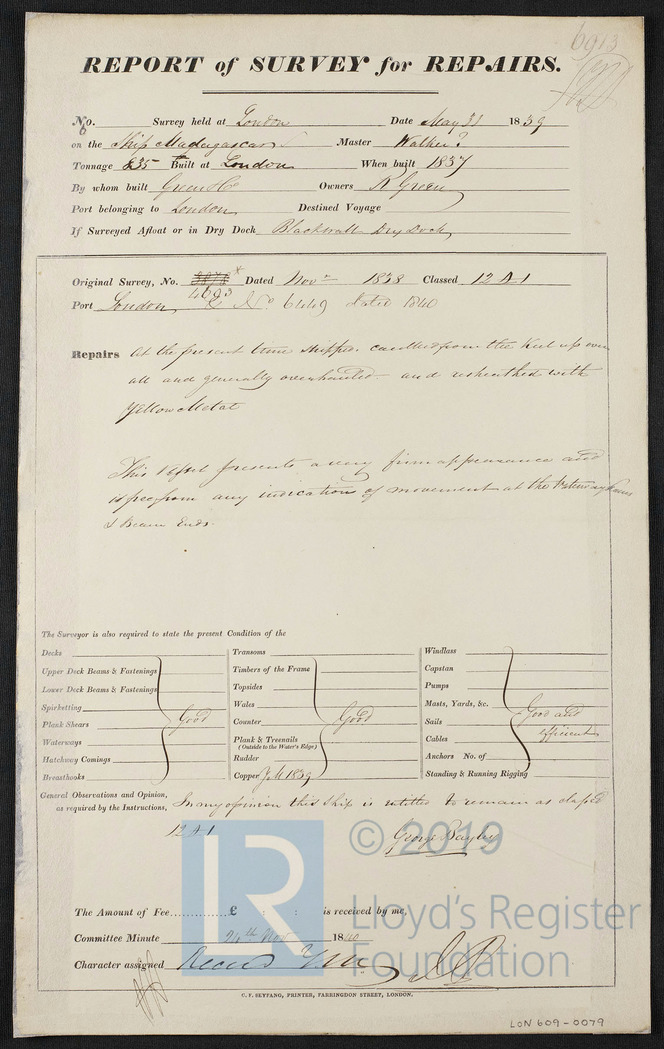 6913
REPORT of SURVEY for REPAIRS.
No. Survey held at London Date May 31 1839
on the Ship Madagascar Master Walker
Tonnage 835 Built at London When built 1837
By whom built Green & Co Owners R Green
Port belonging to London Destined Voyage
If Surveyed Afloat or in Dry Dock Blackwall Dry Dock
Original Survey, No. 4693 Dated Novr 1838 Classed 12 A 1
Port London & No 6449 dated 1840
Repairs At the present time stripped, caulked from the Keel up over
all and generally overhauled and resheathed with
Yellow Metal
This Vessel presents a very firm appearance and
is free from any indication of movement at the Waterways
& Beam Ends.
The Surveyor is also required to state the present Condition of the
Decks
Upper Deck Beams & Fastenings
Lower Deck Beams & Fastenings
Spirketting
Plank Shears
Waterways
Hatchway Comings
Breasthooks
Good
Transoms
Timbers of the Frame
Topsides
Wales
Counter
Plank & Treenails
(Outside to the Water's Edge)
Rudder
Copper 1839
Good
Windlass
Capstan
Pumps
Masts, Yards, &c.
Sails
Cables
Anchors No. of
Standing & Running Rigging
Good and
efficient
General Observations and Opinion,
as required by the Instructions,
In my opinion this Ship is intitled to remain as classed
12 A 1
George Bayley
© 2019
LR
Lloyd's Register
Foundation
The Amount of Fee............£ : : is received by me,
Committee Minute 24th Nov 1840
Character assigned
C. F. SEYFANG, PRINTER, FARRINGDON STREET, LONDON.
LON 609-0079